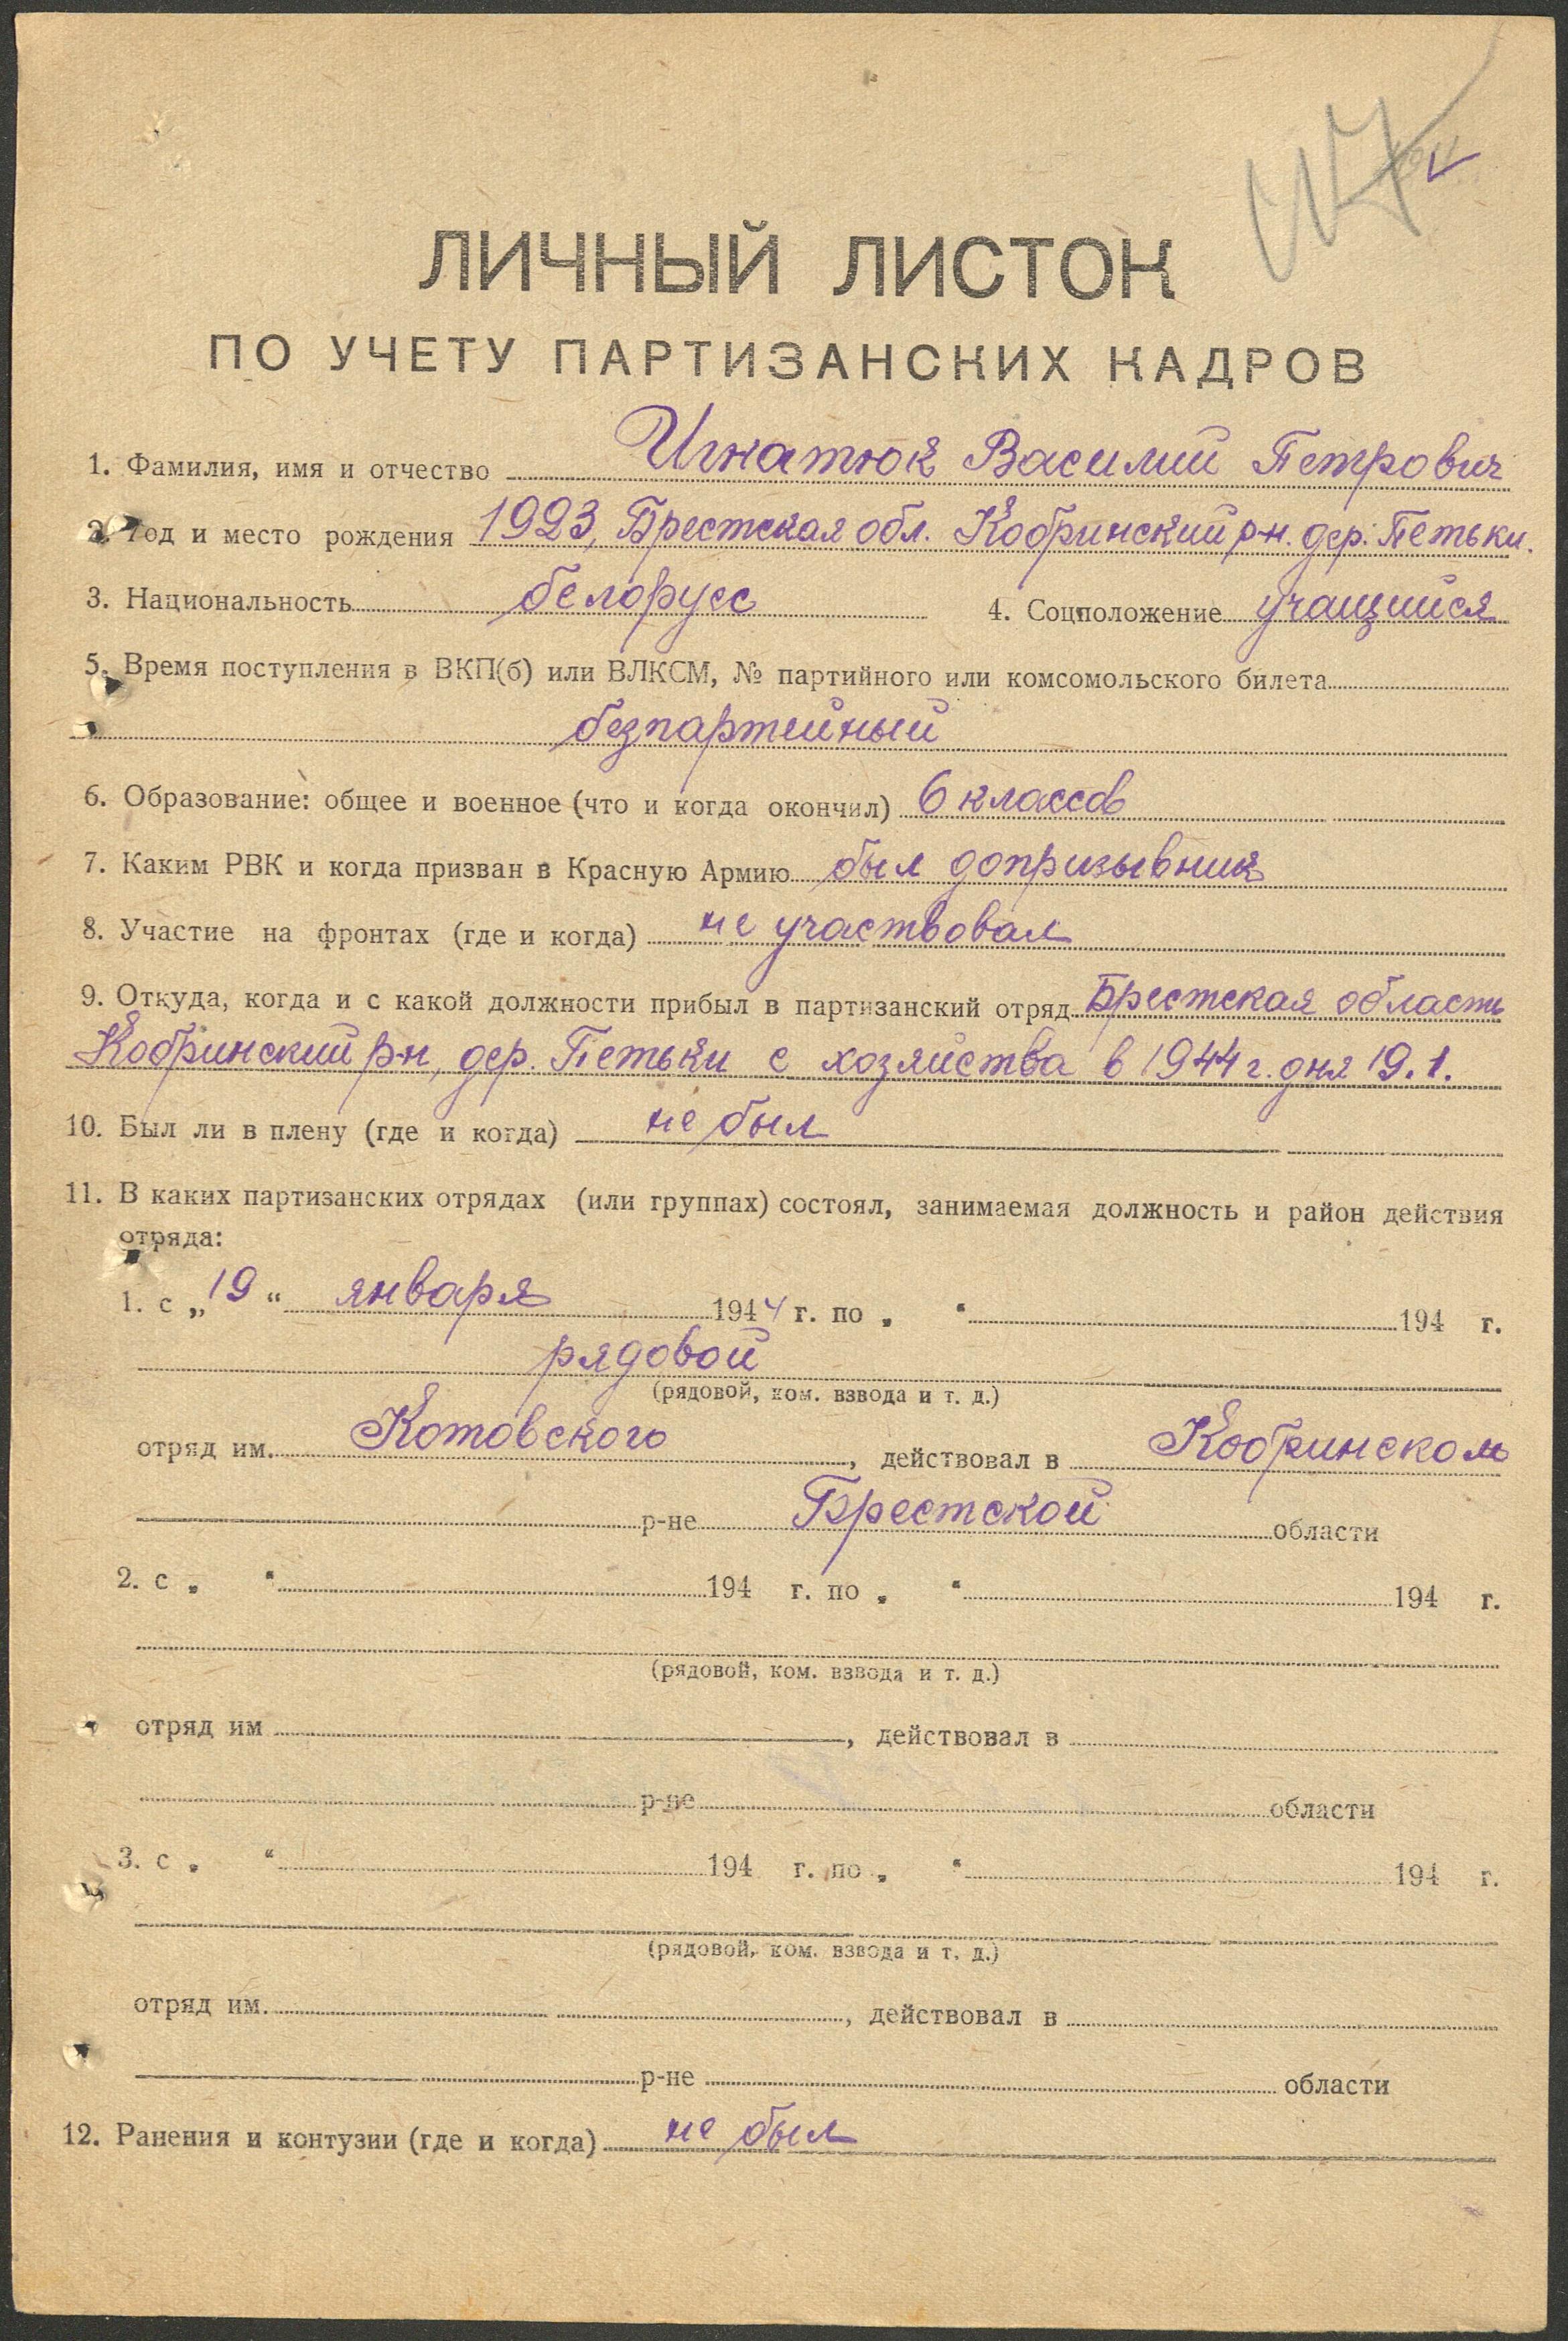 ЛИЧНЫЙ ЛИСТОК
ПО УЧЕТУ ПАРТИЗАНСКИХ КАДРОВ
1. Фамилия, имя и отчество Игнатюк Василий Петрович
2. Год и место рождения 1923, Брестская обл. Кобринский р-н. дер. Петьки.
3. Национальность белорусс 4. Соцположение учащийся
5. Время поступления в ВКП(б) или ВЛКСМ, № партийного или комсомольского билета
безпартейный
6. Образование: общее и военное (что и когда окончил) 6 классов
7. Каким РВК и когда призван в Красную Армию был допризывник
8. Участие на фронтах (где и когда) не участвовал
9. Откуда, когда и с какой должности прибыл в партизанский отряд Брестская область
Кобринский р-н, дер. Петьки с хозяйства в 1944 г. дня 19.1.
10. Был ли в плену (где и когда) не был
11. В каких партизанских отрядах (или группах) состоял, занимаемая должность и район действия
отряда:
1. с „19“ января 1944 г. по „ “ 194 г.
рядовой
(рядовой, ком. взвода и т. д.)
отряд им. Котовского, действовал в Кобринском
р-не Брестской области
2. с „ “ 194 г. по „ “ 194 г.
(рядовой, ком. взвода и т. д.)
отряд им , действовал в
р-не области
3. с „ “ 194 г. по „ “ 194 г.
(рядовой, ком. взвода и т. д.)
отряд им. , действовал в
р-не области
12. Ранения и контузии (где и когда) не был